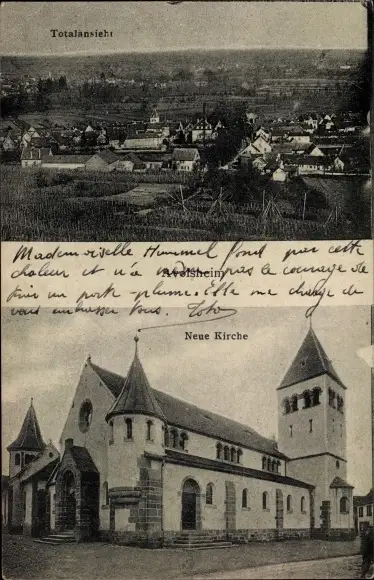 Totalansicht
Mademoiselle Hummel fond par cette
chaleur et n'a pas le courage de
Avolsheim
un porte-plume. Elle me charge de
vous embrasser tous. Toto
Neue Kirche